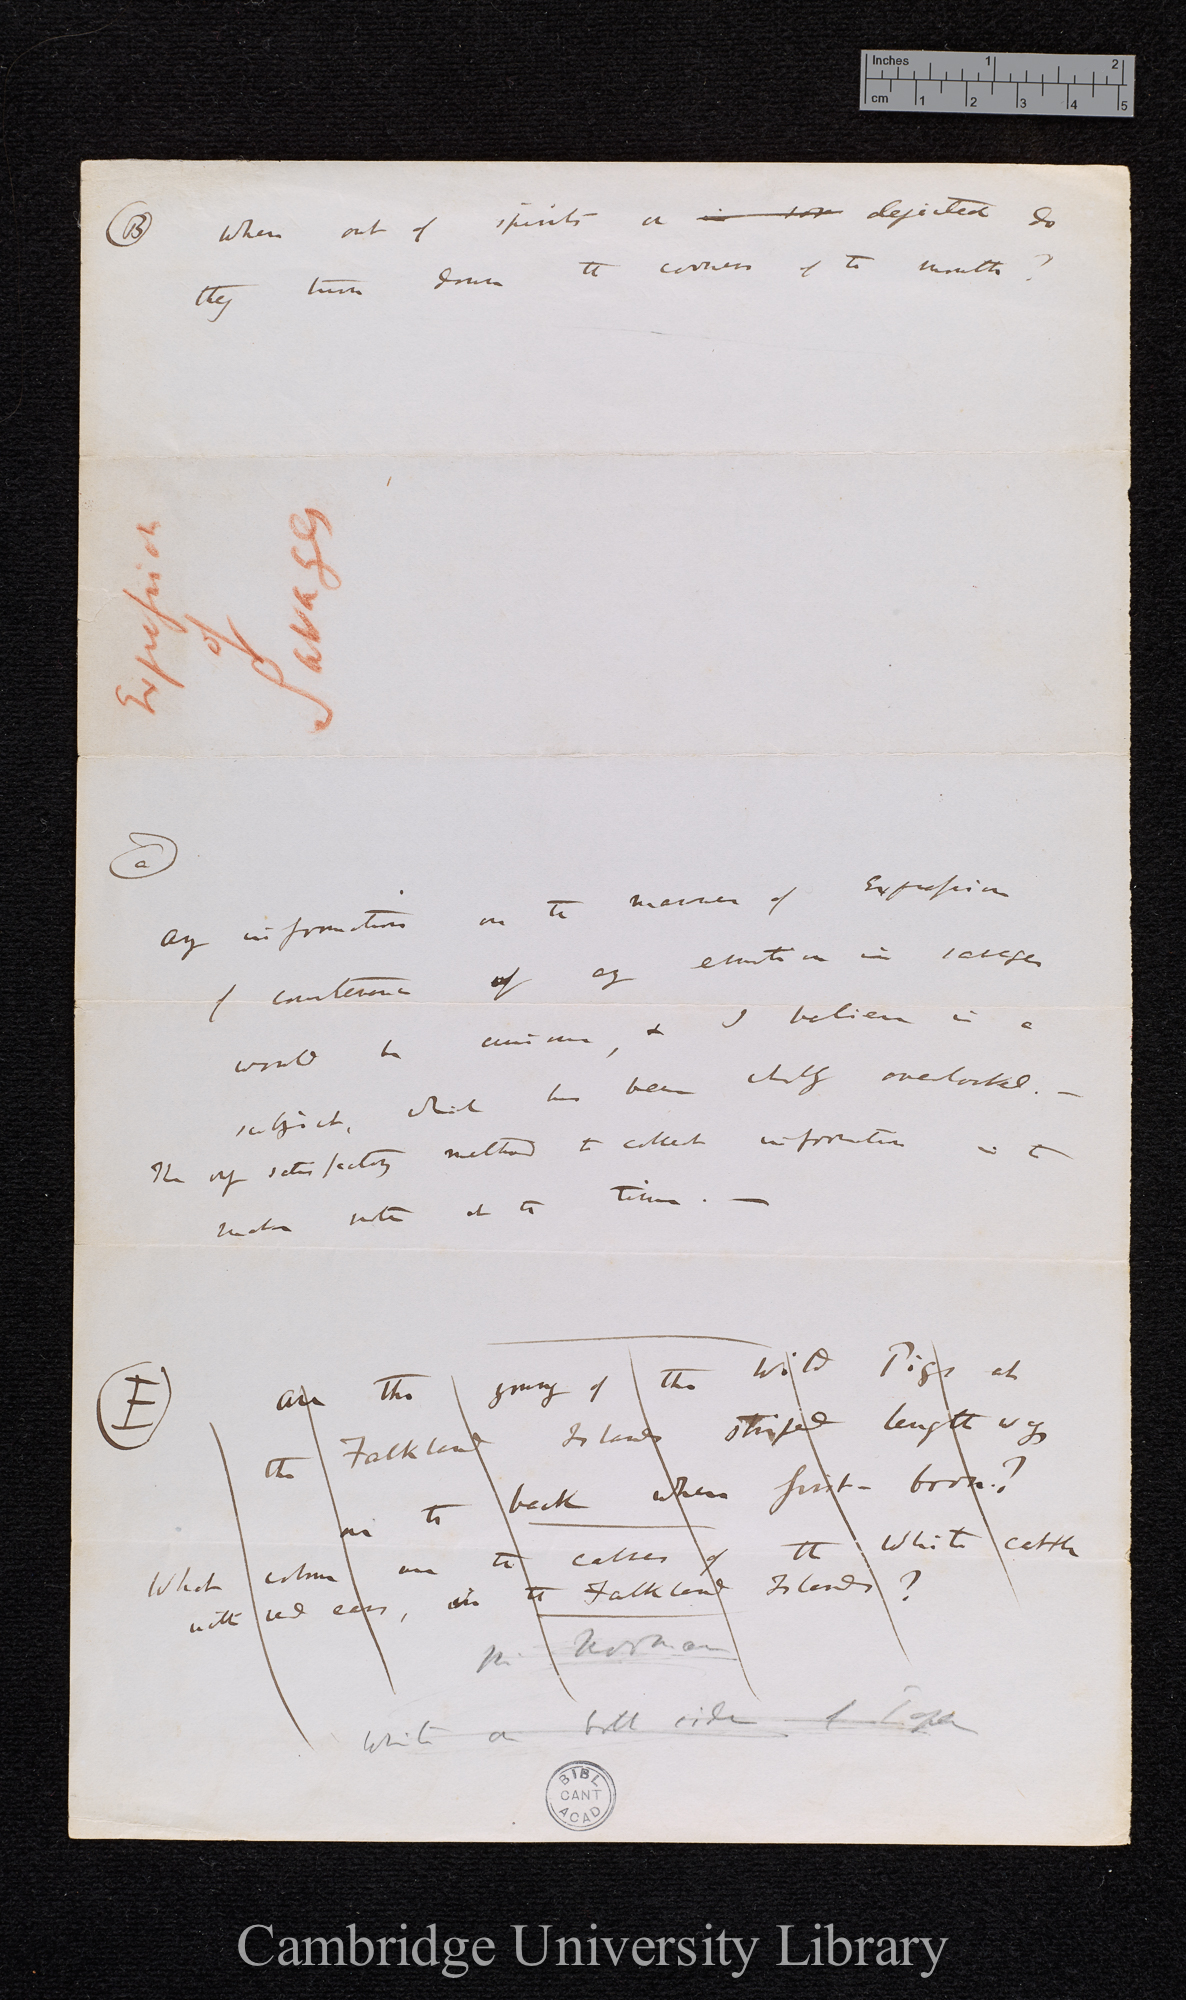 Inches 1 2
cm 1 2 3 4 5
(B) When out of spirits or in low dejected do
they turn down the corners of the mouth?
Expression
of
Savages
(a)
Any information on the manner of Expression
of countenance of any emotion in savages
would be curious, & I believe is a
subject, which has been wholly overlooked. —
The only satisfactory method to collect information is to
make note at the time. —
(E) Are the young of the Wild Pigs at
the Falkland Islands striped length ways
on the back when first born?
What colour are the calves of the White cattle
with red ears, in the Falkland Islands?
Mr. Norman
Write on both sides of Paper
BIBL
CANT
ACAD
Cambridge University Library